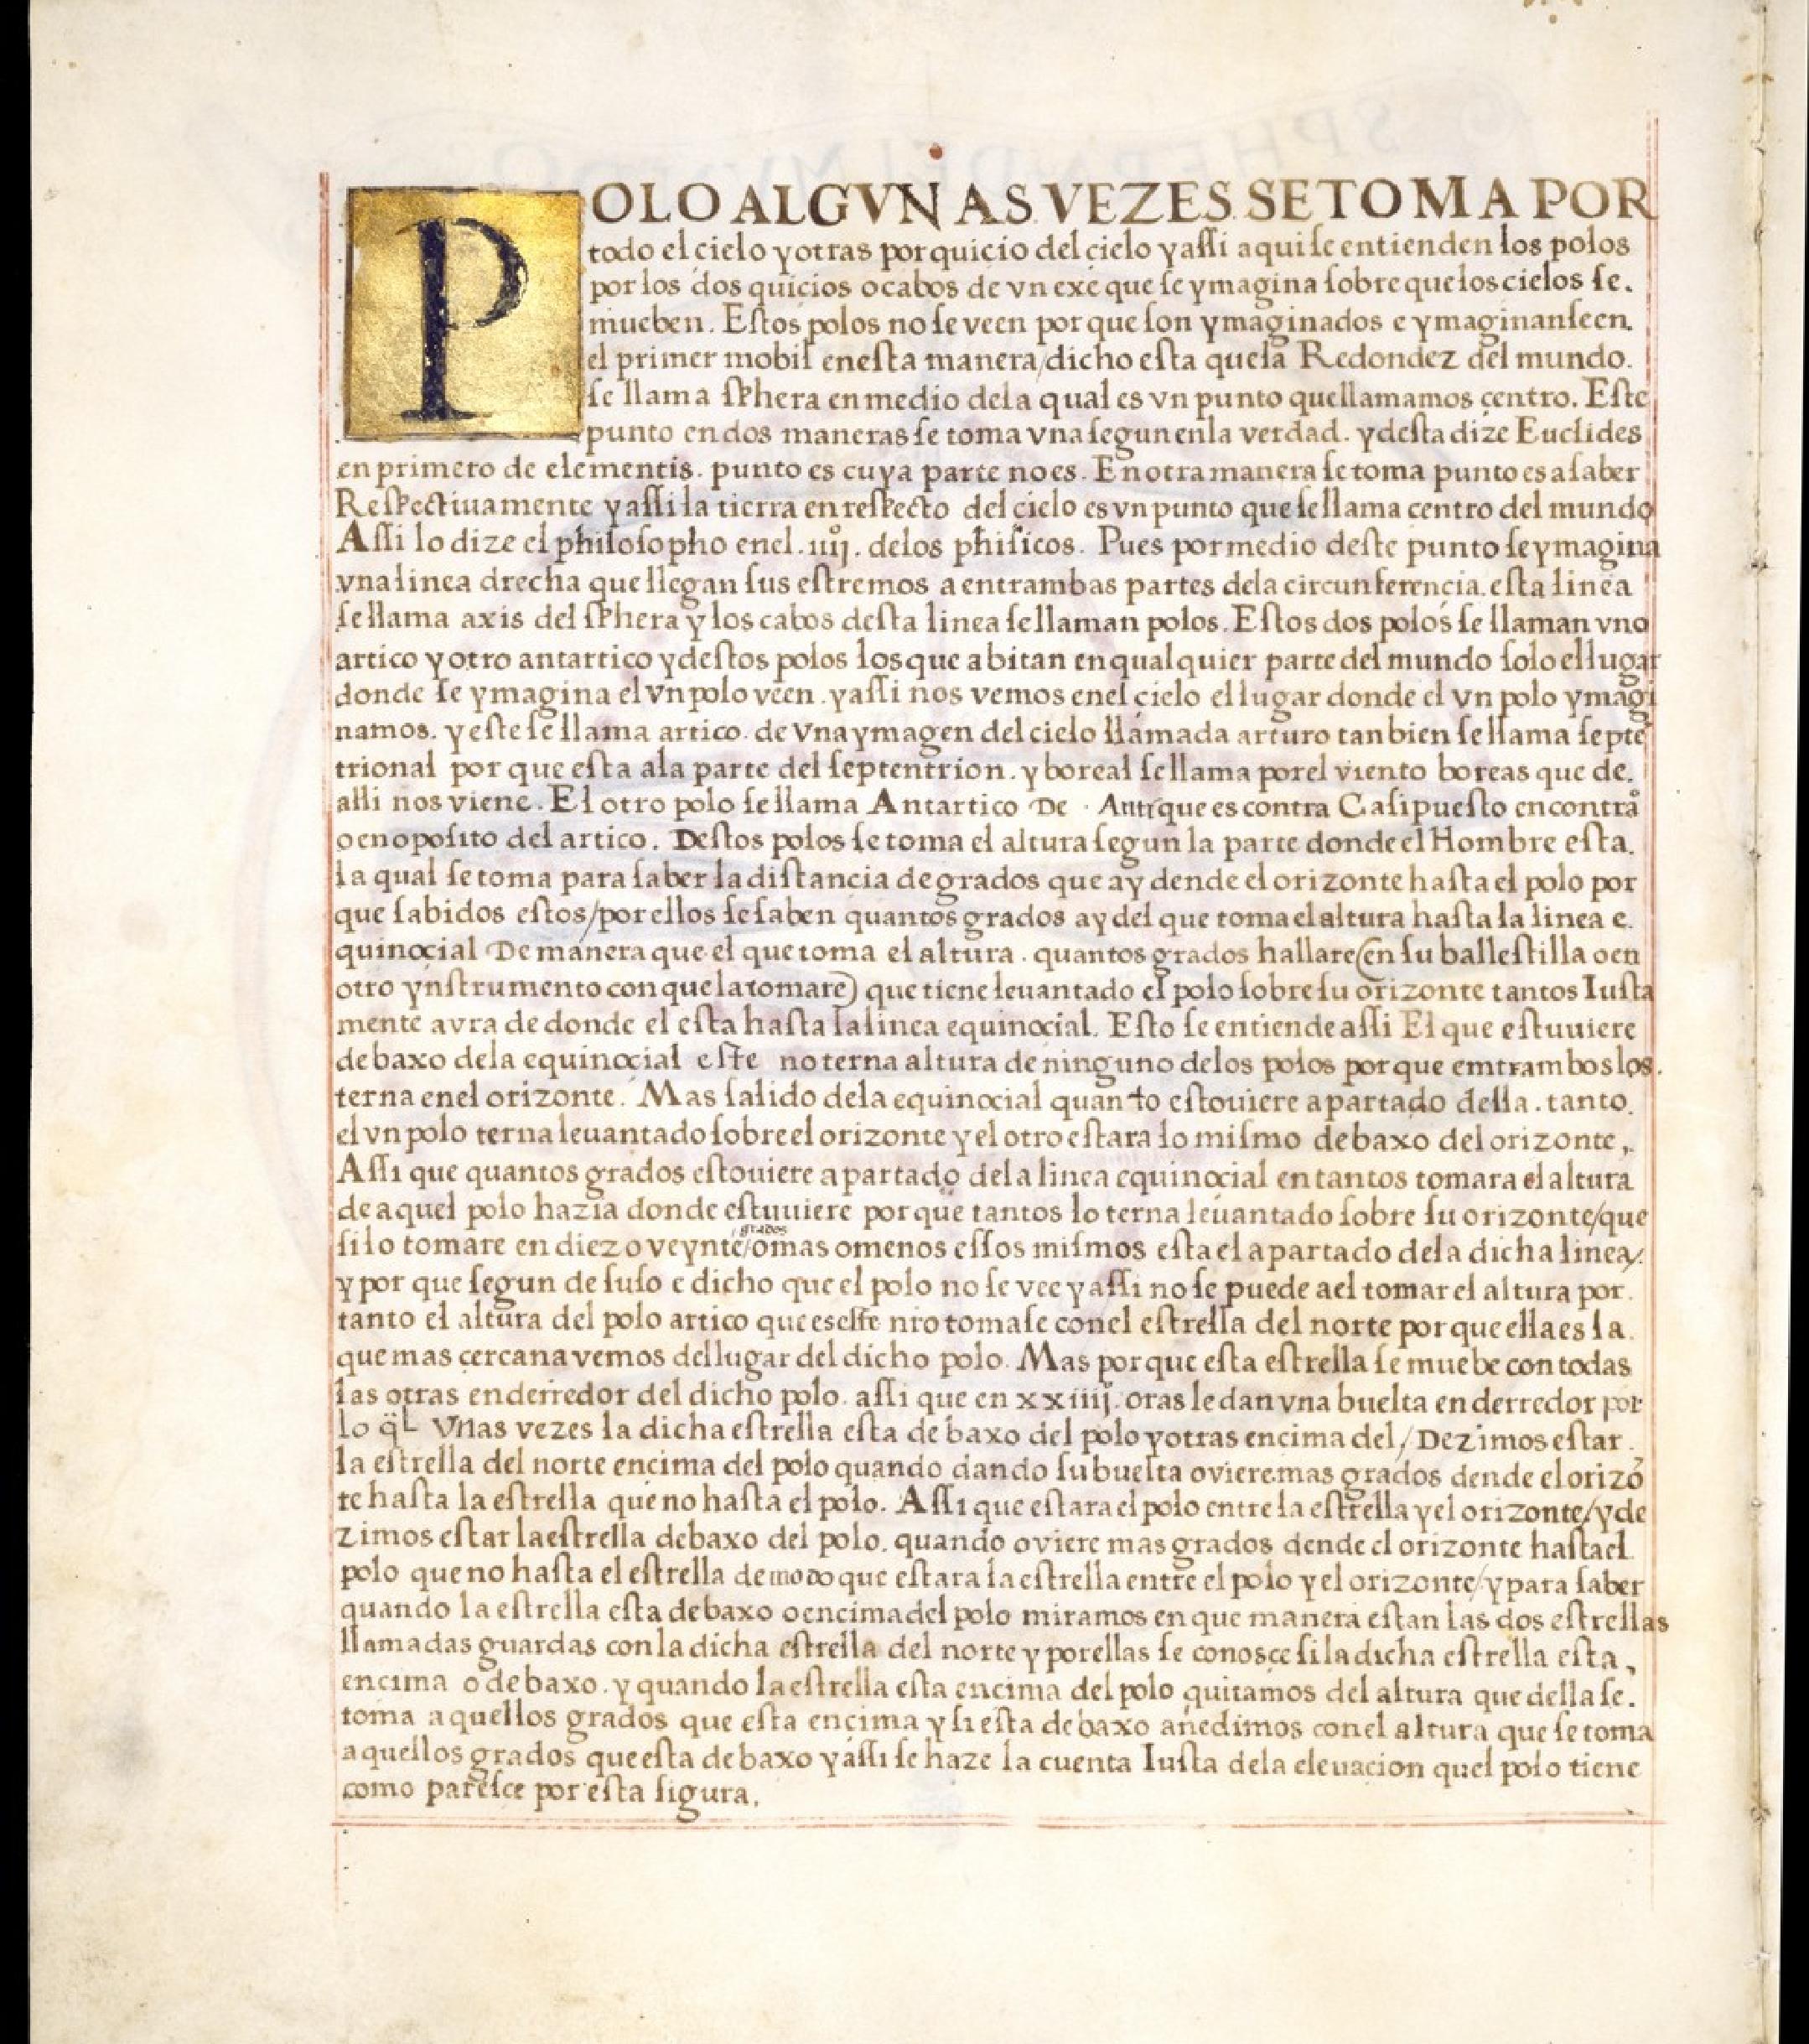 POLO ALGVNAS VEZES SE TOMA POR
todo el cielo y otras por quicio del cielo y assi aqui se entienden los polos
por los dos quicios o cabos de vn exe que se ymagina sobre que los cielos se.
mueben. Estos polos no se veen por que son ymaginados e ymaginanse en.
el primer mobil en esta manera/dicho esta que la Redondez del mundo.
se llama sphera en medio dela qual es vn punto que llamamos çentro. Este
punto en dos maneras se toma vna segun en la verdad. y desta dize Euclides
en primero de elementis. punto es cuya parte no es. En otra manera se toma punto es a saber
Respectiuamente y assi la tierra en respecto del çielo es vn punto que se llama centro del mundo
Assi lo dize el philosopho enel .iiij. delos phisicos. Pues por medio deste punto se ymagina
vna linea drecha que llegan sus estremos a entrambas partes dela circunferençia. esta linea
se llama axis del sphera y los cabos desta linea se llaman polos. Estos dos polos se llaman vno
artico y otro antartico y destos polos los que abitan en qual quier parte del mundo solo el lugar
donde se ymagina el vn polo veen. y assi nos vemos enel çielo el lugar donde el vn polo ymagi
namos. y este se llama artico. de vna ymagen del cielo llamada arturo tan bien se llama septē
trional por que esta ala parte del septentrion. y boreal se llama por el viento boreas que de.
alli nos viene. El otro polo se llama Antartico De . Anti que es contra Casi puesto en contrao
o en oposito del artico. Destos polos se toma el altura segun la parte donde el Hombre esta.
la qual se toma para saber la distancia de grados que ay dende el orizonte hasta el polo por
que sabidos estos/por ellos se saben quantos grados ay del que toma el altura hasta la linea e.
quinoçial De manera que el que toma el altura. quantos grados hallare (en su ballestilla o en
otro ynstrumento con que la tomare) que tiene leuantado el polo sobre su orizonte tantos Iusta
mente avra de donde el esta hasta la linea equinoçial. Esto se entiende assi El que estuuiere
debaxo dela equinoçial este no terna altura de ninguno delos polos por que emtrambos los.
terna enel orizonte. Mas salido dela equinoçial quanto estouiere apartado della. tanto.
el vn polo terna leuantado sobre el orizonte y el otro estara lo mismo debaxo del orizonte,.
Assi que quantos grados estouiere apartado dela linea equinoçial en tantos tomara el altura
de aquel polo hazia donde estuuiere por que tantos lo terna leuantado sobre su orizonte/que
si lo tomare en diez o veynte/grados o mas o menos essos mismos esta el apartado dela dicha linea/.
y por que segun de suso e dicho que el polo no se vee y assi no se puede a el tomar el altura por.
tanto el altura del polo artico que es este nro tomase con el estrella del norte por que ella es la.
que mas çercana vemos del lugar del dicho polo. Mas por que esta estrella se muebe con todas
las otras en derredor del dicho polo. assi que en xxiiij. oras le dan vna buelta en derredor por
lo q̈l vnas vezes la dicha estrella esta debaxo del polo y otras encima del/Dezimos estar.
la estrella del norte encima del polo quando dando su buelta oviere mas grados dende el orizō
te hasta la estrella que no hasta el polo. Assi que estara el polo entre la estrella y el orizonte/y de
zimos estar la estrella debaxo del polo. quando oviere mas grados dende el orizonte hasta el.
polo que no hasta el estrella de modo que estara la estrella entre el polo y el orizonte/y para saber
quando la estrella esta debaxo o encima del polo miramos en que manera estan las dos estrellas
llamadas guardas con la dicha estrella del norte y por ellas se conosçe si la dicha estrella esta,
encima o debaxo. y quando la estrella esta encima del polo quitamos del altura que della se.
toma aquellos grados que esta ençima y si esta debaxo añedimos con el altura que se toma
aquellos grados que esta debaxo y assi se haze la cuenta Iusta dela eleuacion quel polo tiene
como paresce por esta figura.